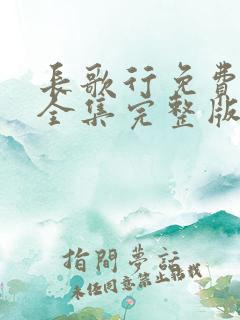 長歌行免費
全集完整版
指間夢話
未經同意禁止轉載